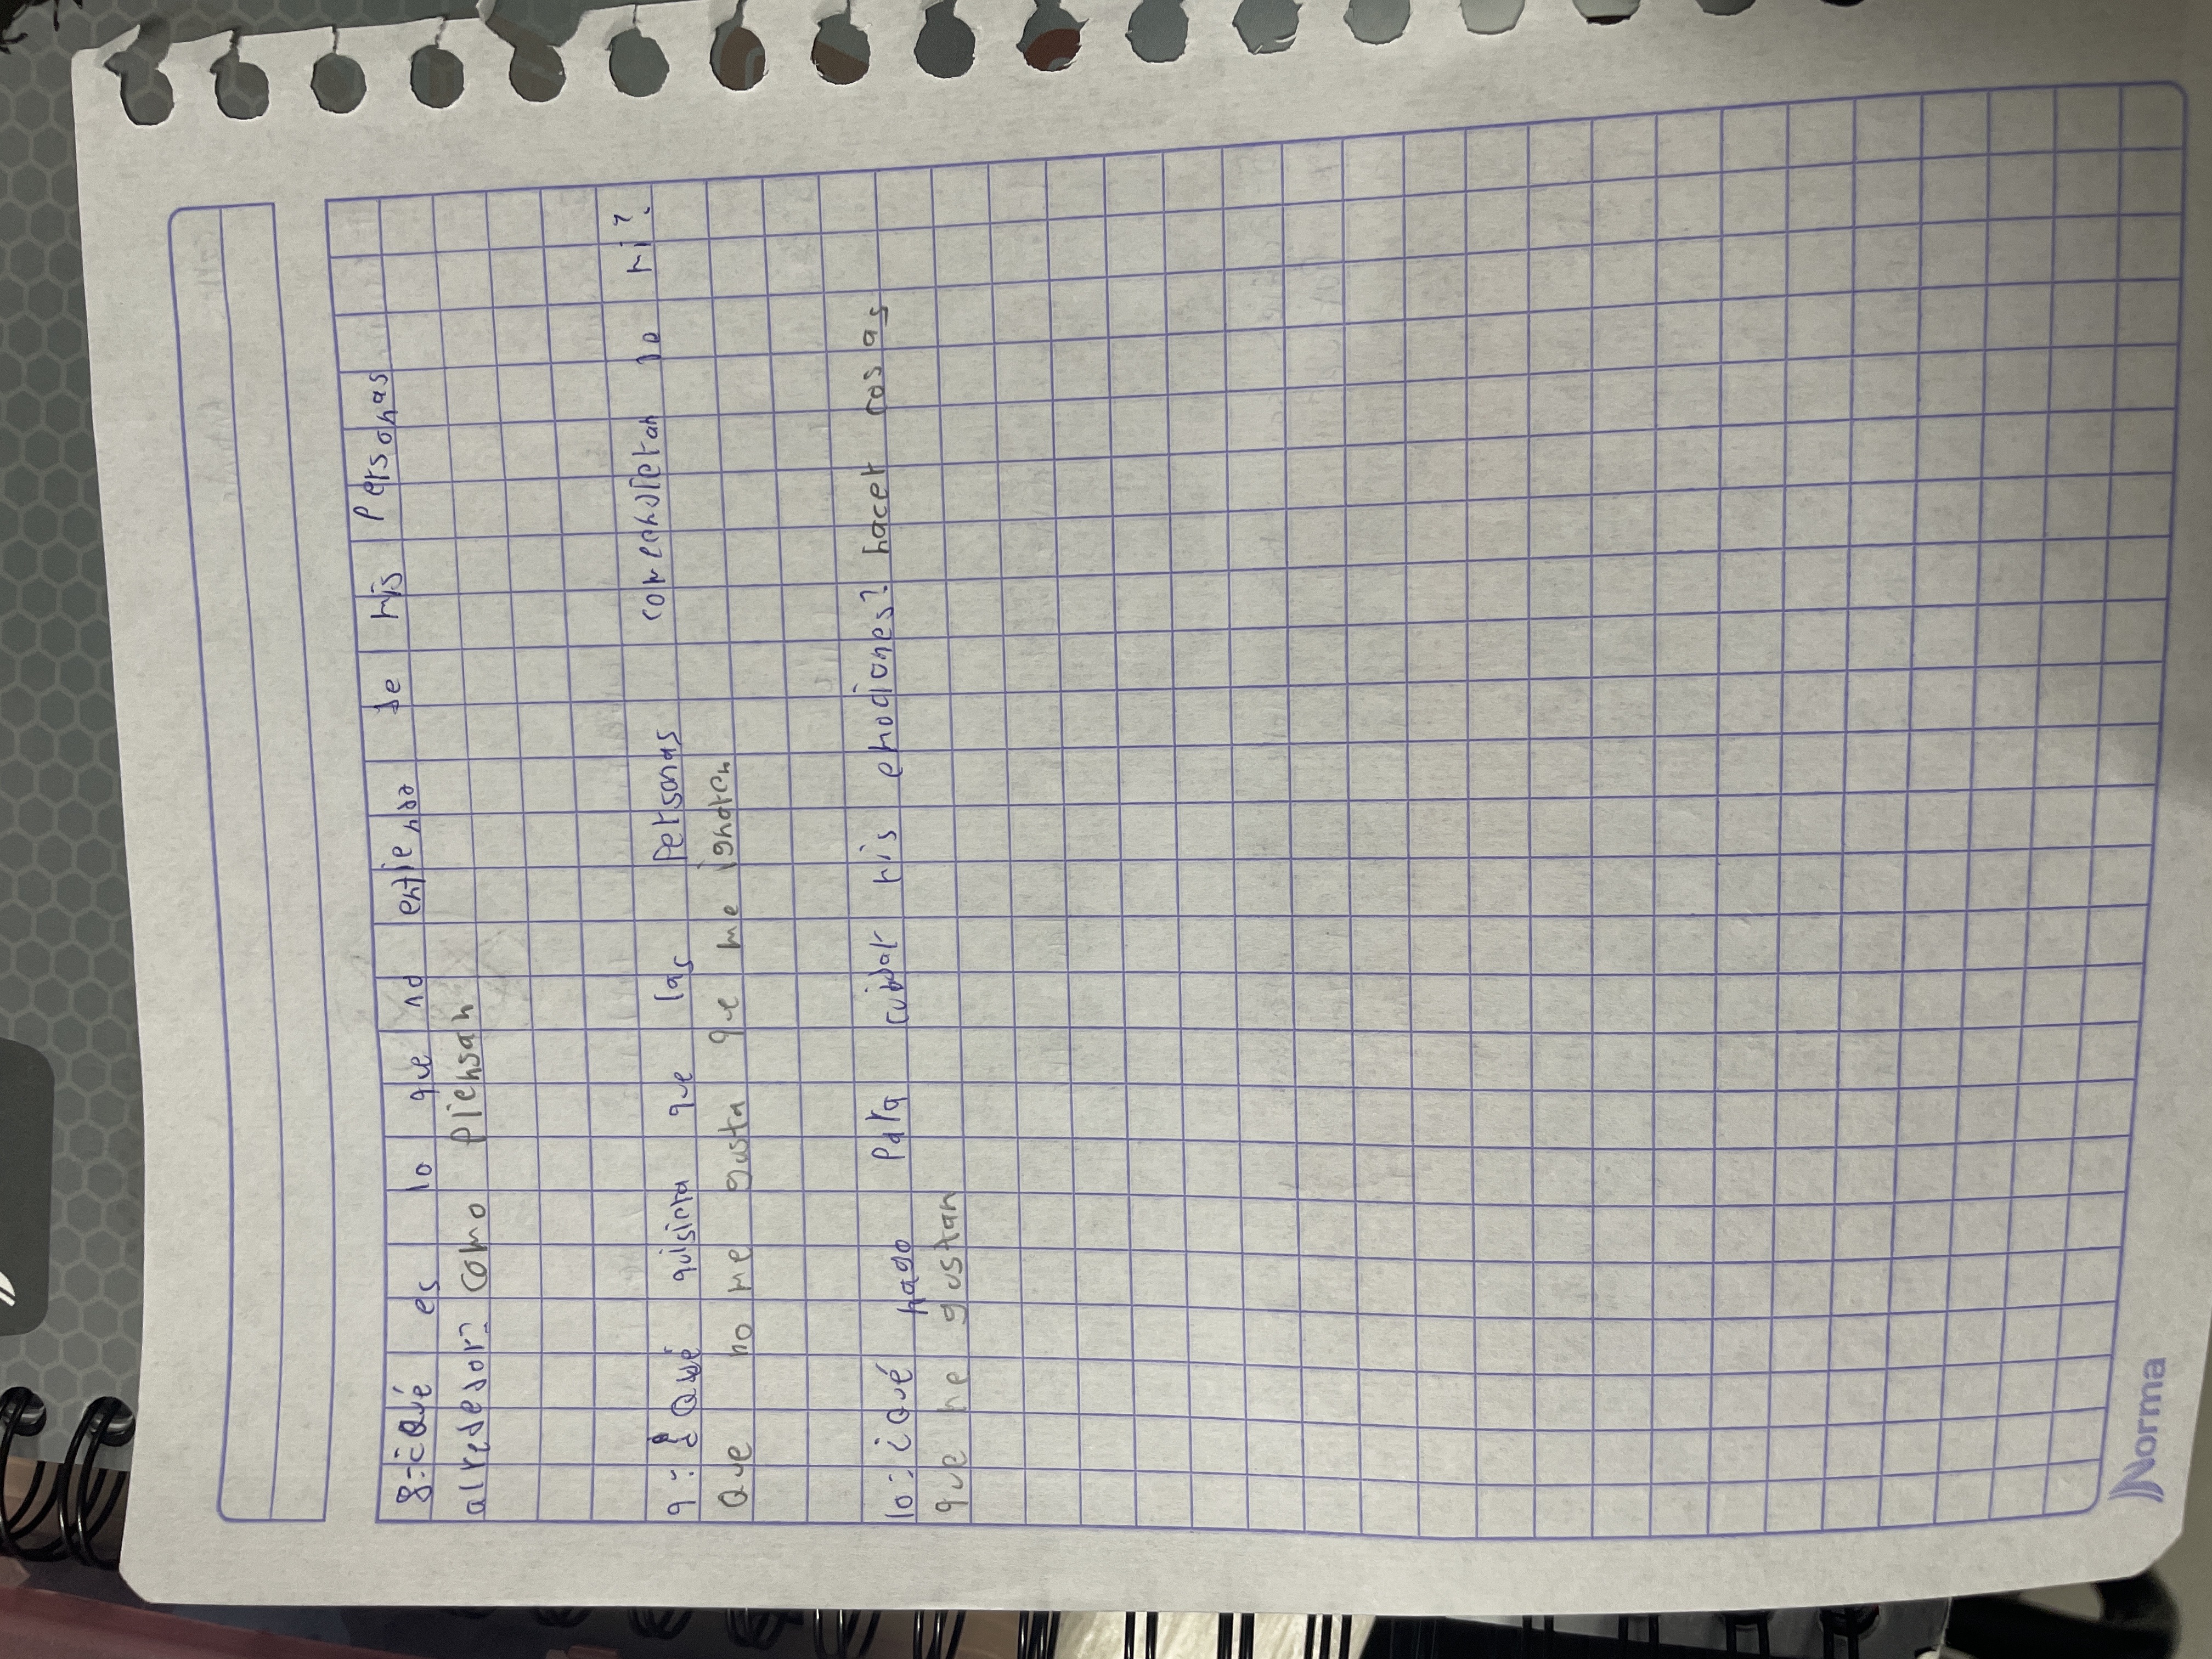 8-¿Qué es lo que no entiendo de mis personas
alrededor? Como piensan
9-¿Qué quisiera que las personas comprendieran de mi?
Que no me gusta que me ignoren
10-¿Qué hago para cuidar mis emociones? hacer cosas
que me gustan
Norma